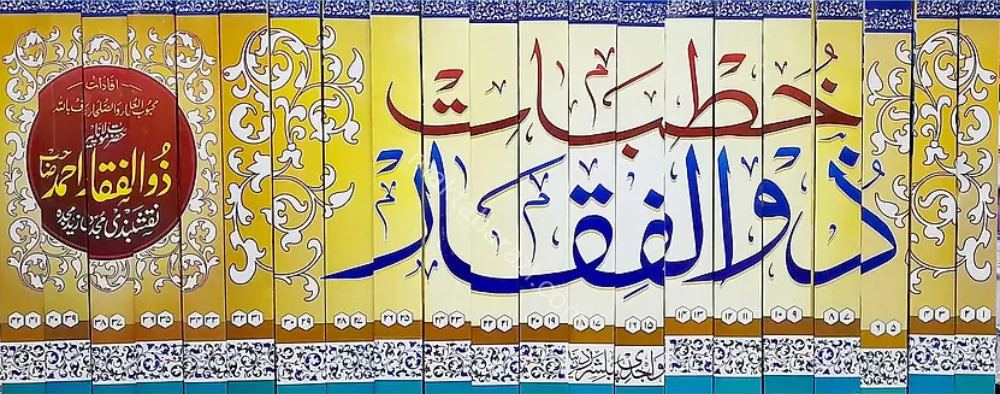 خطبات
ذوالفقار
افادات
محبوب العلماء والصلحاء عارف باللہ
حضرت مولانا پیر
ذوالفقار احمد صاحب
نقشبندی مجددی زید مجدہ
۱ ۲ ۳ ۴ ۵ ۶ ۷ ۸ ۹ ۱۰ ۱۱ ۱۲ ۱۳ ۱۴ ۱۵ ۱۶ ۱۷ ۱۸ ۱۹ ۲۰ ۲۱ ۲۲ ۲۳ ۲۴ ۲۵ ۲۶ ۲۷ ۲۸ ۲۹ ۳۰ ۳۱ ۳۲ ۳۳ ۳۴ ۳۵ ۳۶ ۳۷ ۳۸ ۳۹ ۴۰ ۴۱ ۴۲